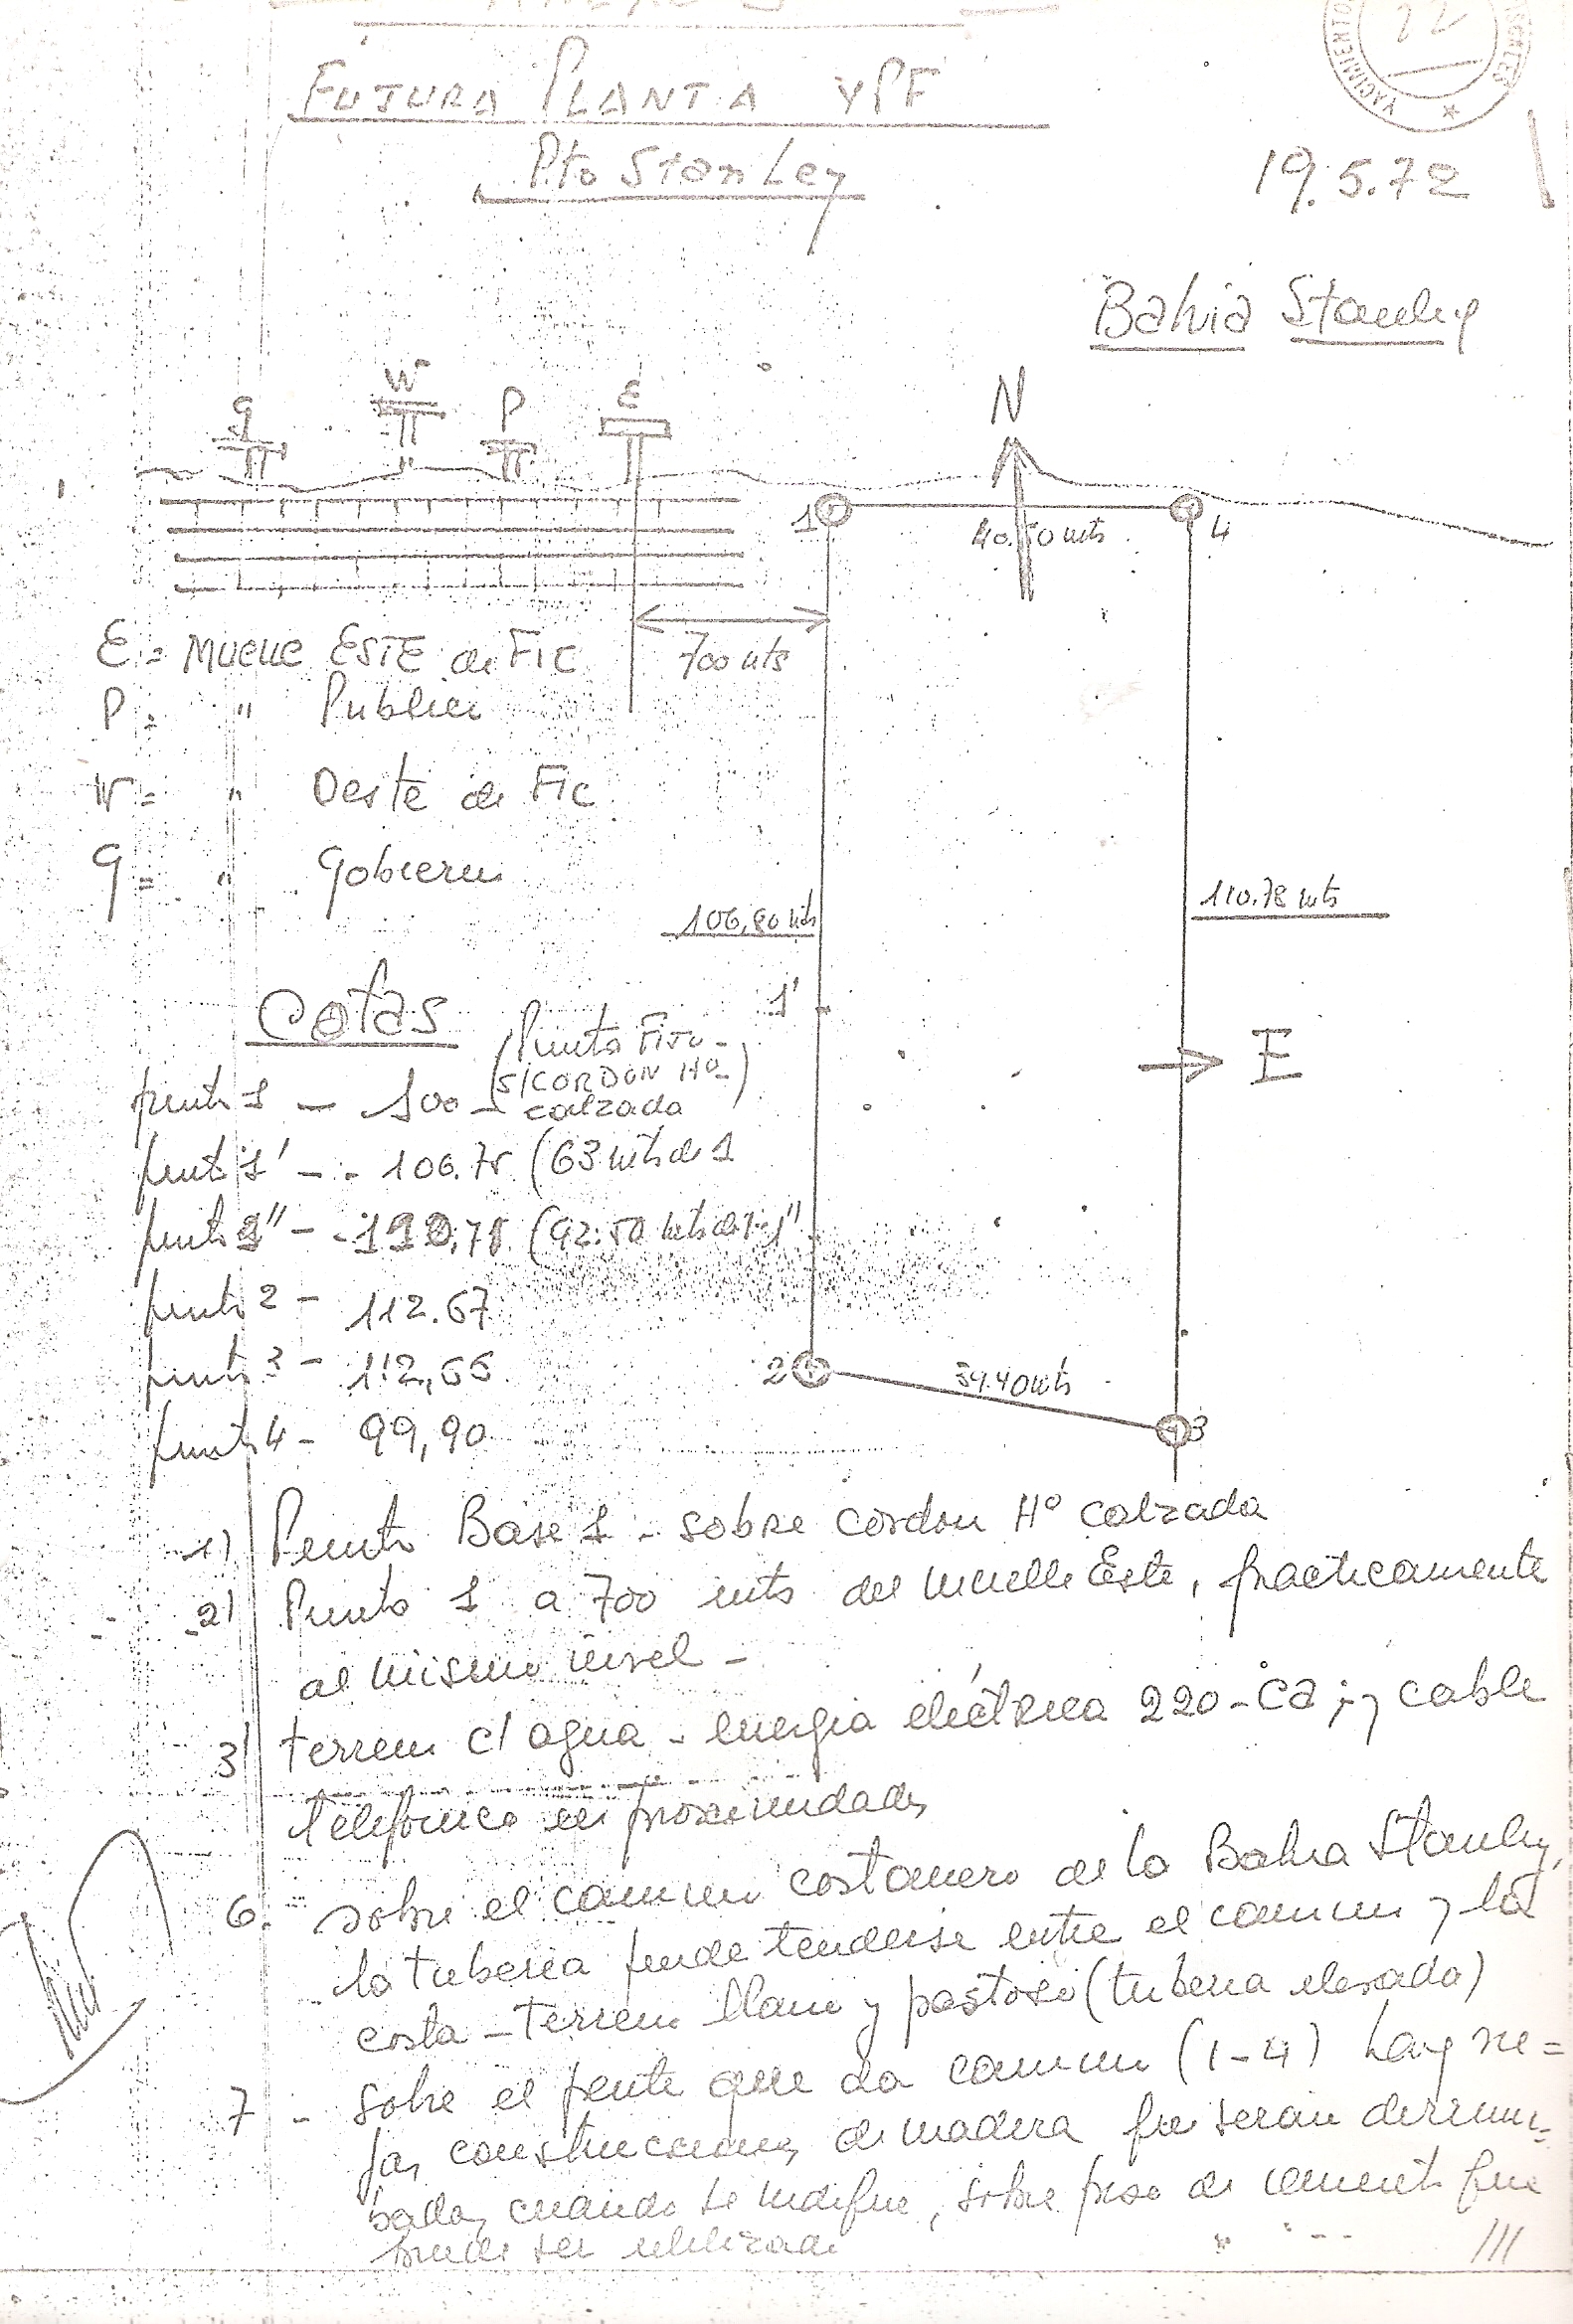 FUTURA PLANTA YPF
Pto Stanley
19.5.72
22
YACIMIENTO
Bahia Stanley
G
W
P
E
N
1
40.50 mts
4
700 mts
E = MUELLE ESTE de FIC
P = " Publico
W = " Oeste de FIC
G = " Gobierno
106,80 mts
110.78 mts
1'
E
Cotas
(Punto Fijo -
S/CORDON Hº
calzada)
punto 1 — 100 —
punto 1' — - 106.75 (63 mts de 1
punto 1" — - 110,78 (92.50 mts de 1-1"
punto 2 — 112.67
punto 3 — 112,66
punto 4 - 99,90
2
39.40 mts
3
1) Punto Base 1 - sobre cordon Hº calzada
2) Punto 1 a 700 mts del muelle Este, practicamente
al mismo nivel -
3) terreno c/ agua - energia eléctrica 220 - Ca ; y cable
telefonico en proximidades
6. sobre el camino costanero de la Bahia Stanley,
la tuberia puede tenderse entre el camino y la
costa - terreno llano y pastoso (tuberia elevada)
7 - Sobre el frente que da camino (1-4) hay vie=
jas construcciones de madera que seran derrum=
badas cuando se indique, sobre piso de cemento que
puede ser utilizado
" " -- ///